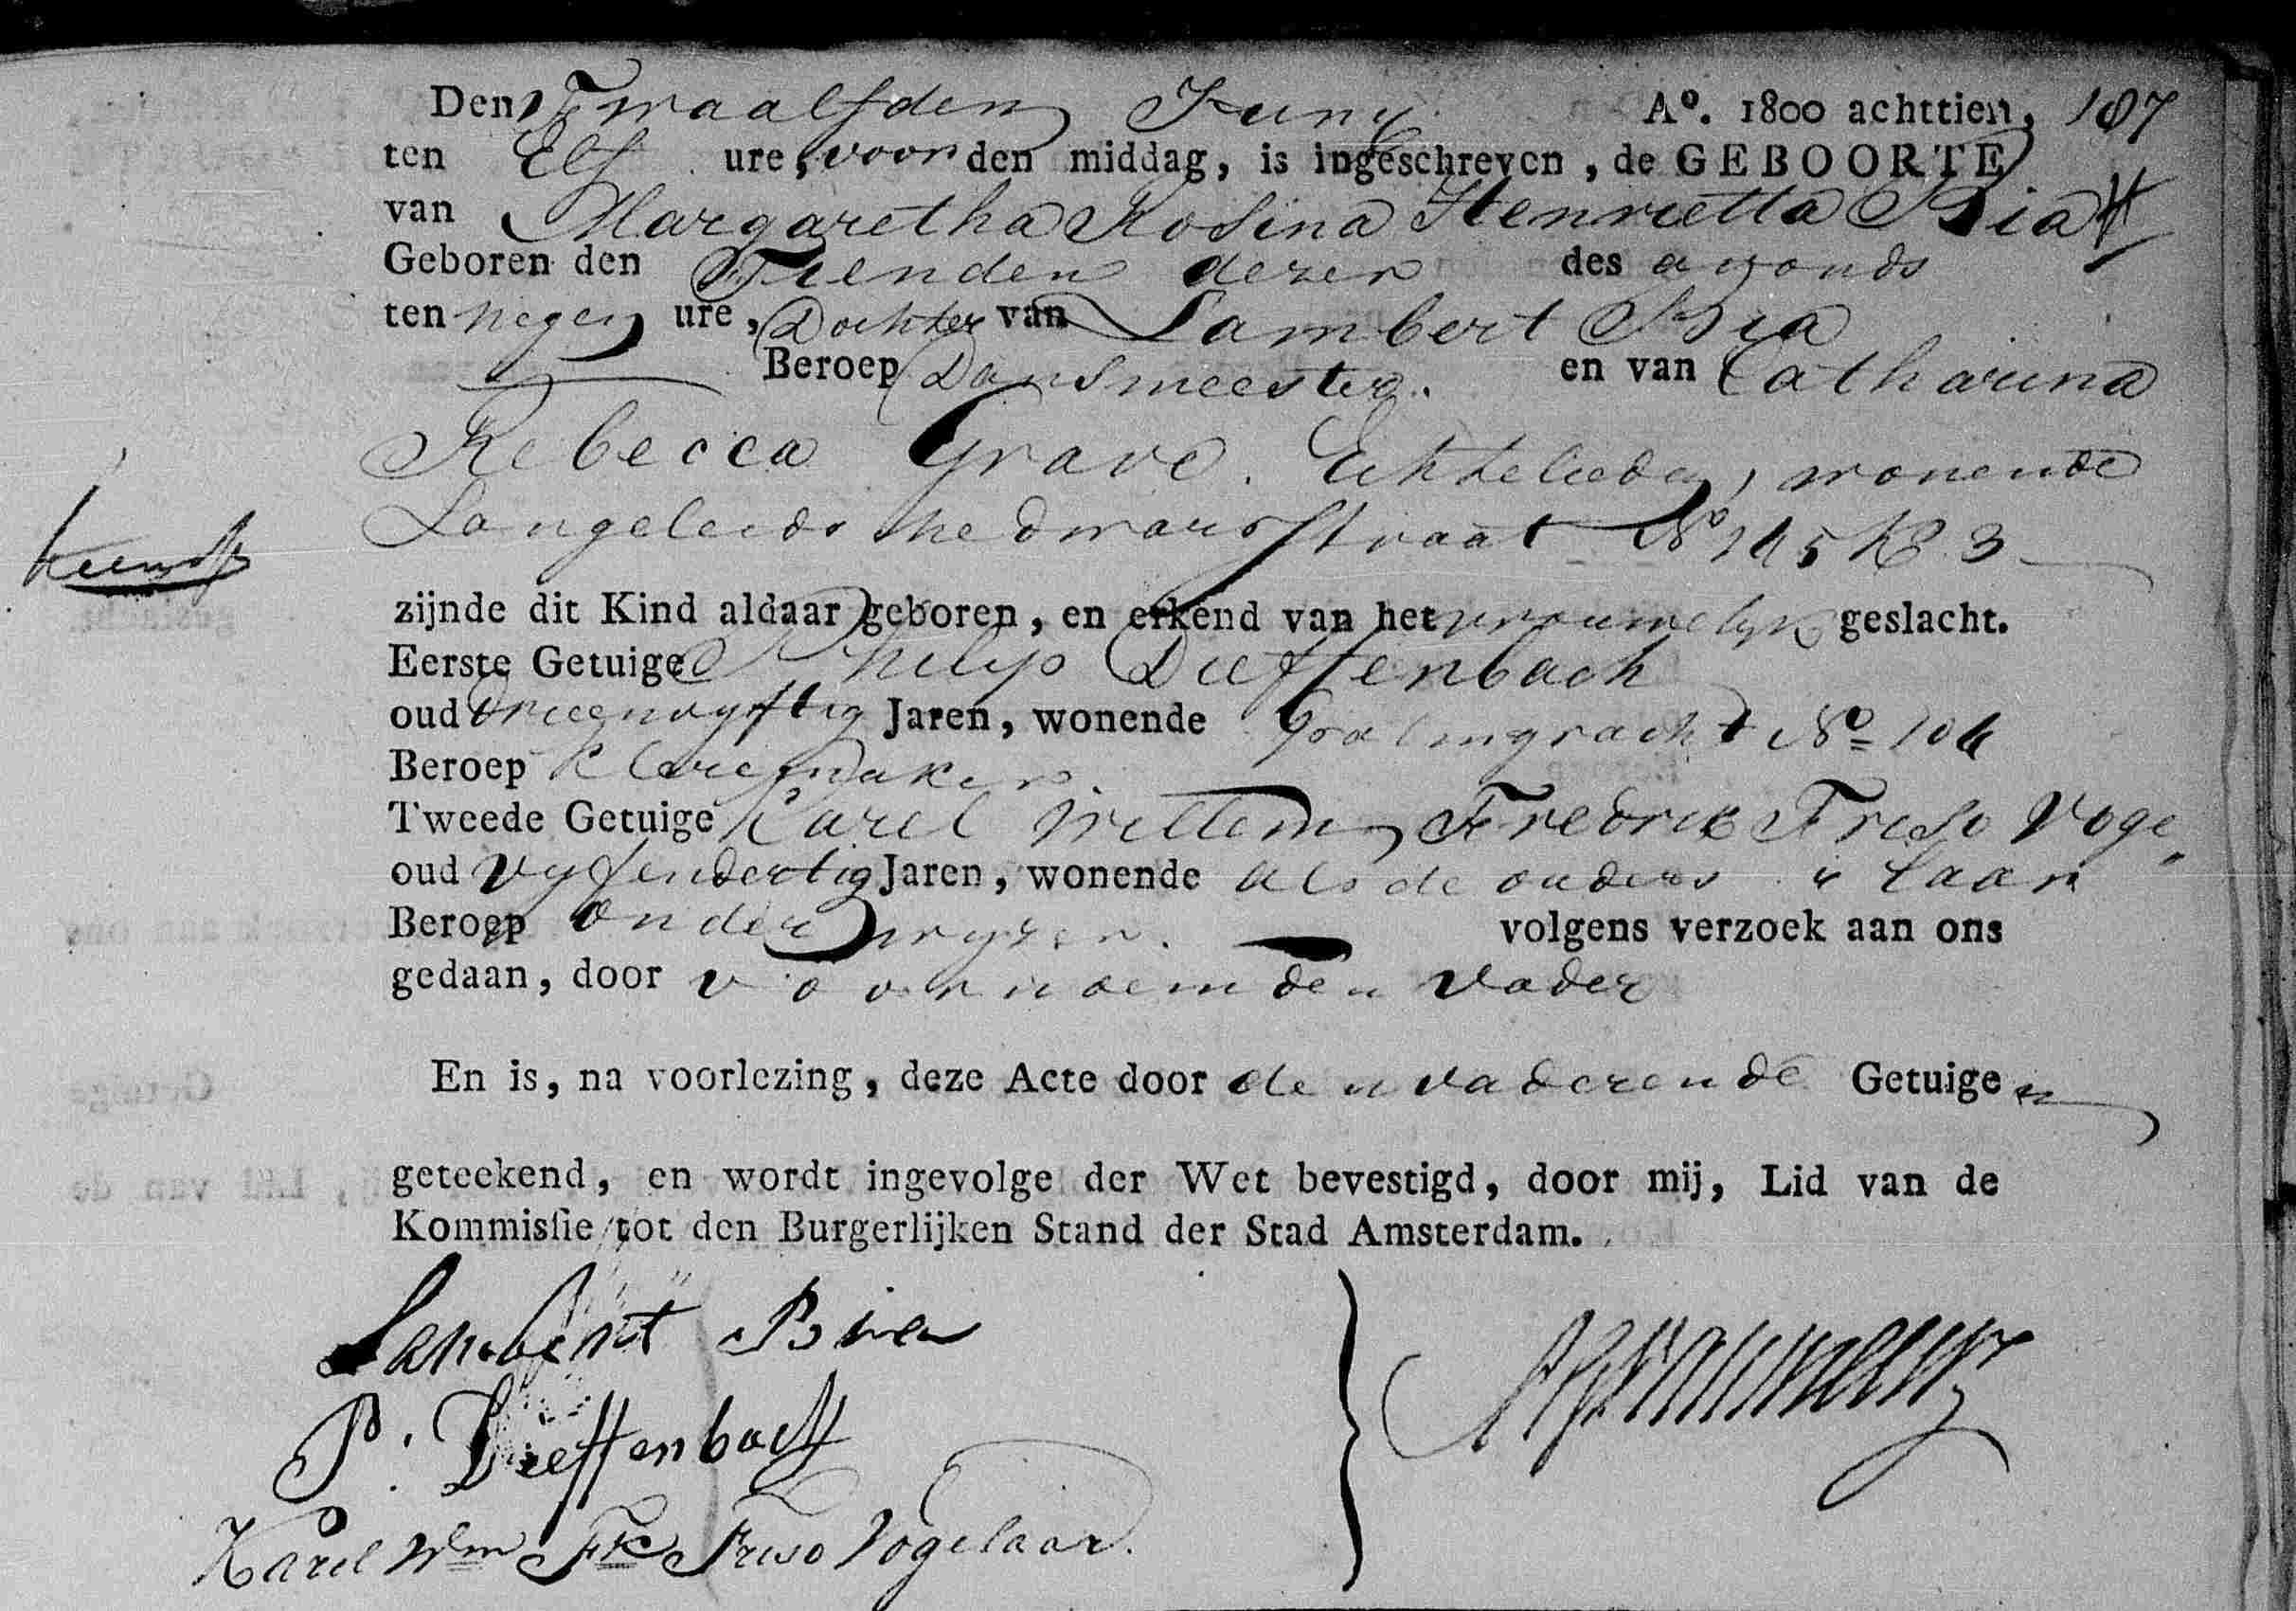 Den Twaalfden Juny Aº. 1800 achttien, 187
ten Elf ure, voor den middag, is ingeschreven, de GEBOORTE
van Margaretha Rosina Henrietta Bia
Geboren den Tienden dezer des avonds
ten negen ure, Dochter van Lambert Bia
Beroep Dansmeester. en van Catharina
Rebecca Grave. Echtelieden, wonende
Langeleidschedwarsstraat Nº 145 K 3
zijnde dit Kind aldaar geboren, en erkend van het vrouwelyk geslacht.
Eerste Getuige Philip Dieffenbach
oud drieenvyftig Jaren, wonende Palmgracht Nº 104
Beroep kleermaker.
Tweede Getuige Karel Willem Fredrik Friso Voge„
oud vyfendertig Jaren, wonende als de ouders „laar
Beroep onderwyzer. volgens verzoek aan ons
gedaan, door voornoemden vader
En is, na voorlezing, deze Acte door den vader en de Getuigen
geteekend, en wordt ingevolge der Wet bevestigd, door mij, Lid van de
Kommissie tot den Burgerlijken Stand der Stad Amsterdam.
Lambert Bia
P. Dieffenbach
Karel Wm Fk Friso Vogelaar.